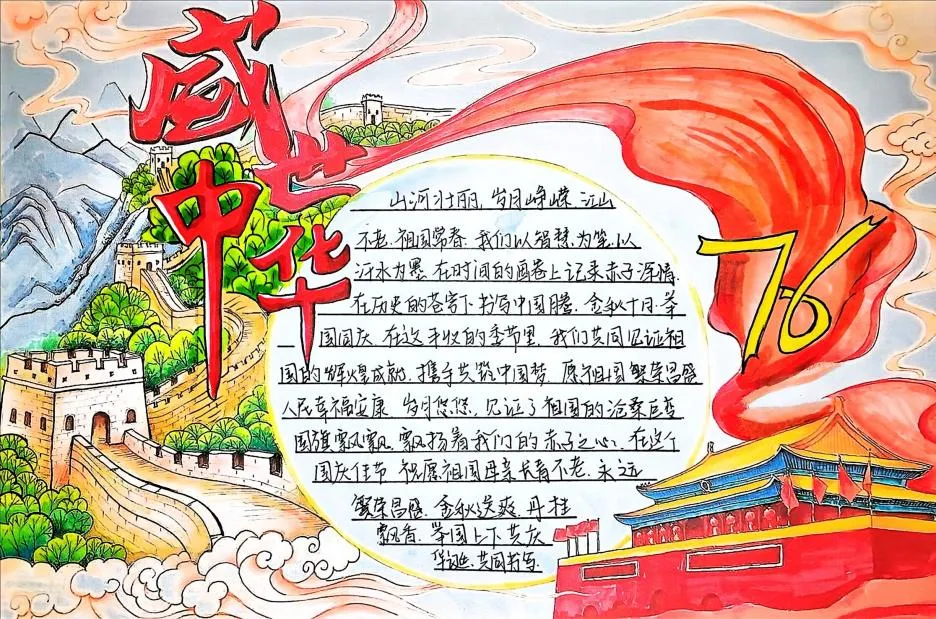 盛世
中华
76
山河壮丽,岁月峥嵘,江山
不老,祖国常春,我们以智慧为笔,以
汗水为墨,在时间的画卷上记录赤子深情,
在历史的苍穹下书写中国腾,金秋十月,举
国同庆,在这丰收的季节里,我们共同见证祖
国的辉煌成就,携手共筑中国梦,愿祖国繁荣昌盛
人民幸福安康,岁月悠悠,见证了祖国的沧桑巨变
国旗飘飘,飘扬着我们的赤子之心,在这个
国庆佳节,祝愿祖国母亲长青不老,永远
繁荣昌盛,金秋送爽,丹桂
飘香,举国上下共庆
华诞,共同书写